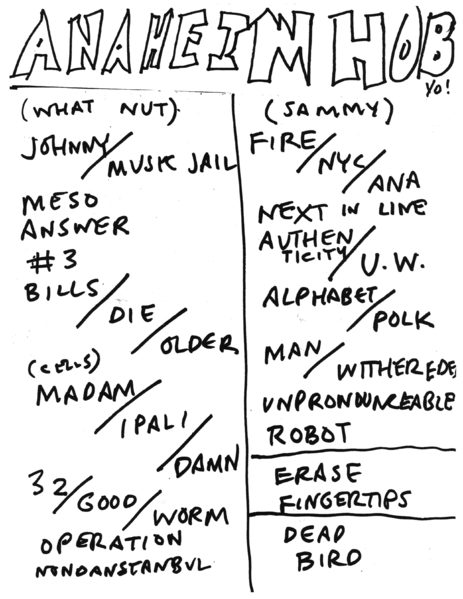 ANAHEIM HOB
YO!
(WHAT NUT)
JOHNNY/
MUSIC JAIL
MESO
ANSWER
#3
BILLS/
DIE/
OLDER
(CELLS)
MADAM/
IPALI/
DAMN
32/GOOD/
WORM
OPERATION
NONOANSTANBUL
(SAMMY)
FIRE/
NYC/
ANA
NEXT IN LINE
AUTHEN
TICITY/
U.W.
ALPHABET/
POLK
MAN/
WITHEREDE
UNPRONOUNCEABLE
ROBOT
ERASE
FINGERTIPS
DEAD
BIRD